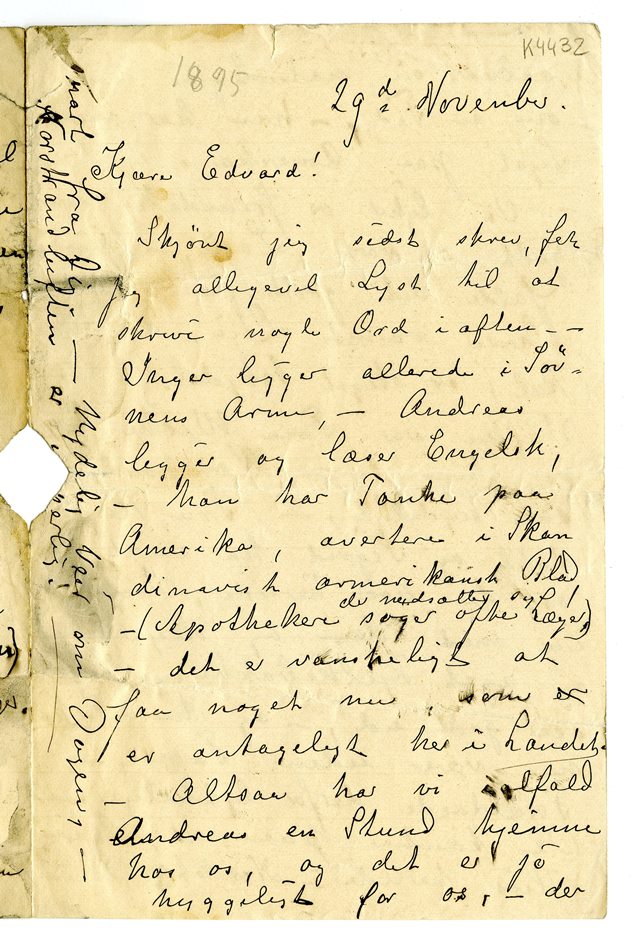 K4432
1895
29d November.
Kjære Edvard!
Skjønt jeg sidst skrev, fek
jeg allegevel Lyst til at
skrive nogle Ord i aften - -
Inger ligger allerede i Søv-
nens Arme, - Andreas
legger og læser Engelsk,
- han har Tanke paa
Amerika, avertere i Skan
dinavisk armerikansk Blad
de nedsætter sig
- (Apothekere søger ofte Læger)
- det er vanskeligt at
faa noget nu, som
er antageligt her i Landet.
- Altsaa har vi ialfald
Andreas en Stund hjemme
hos os, og det er jo
hyggeligt for os, - der
snart fra Dig - Nydelig Veir om Dagen, -
Norstrandluften er